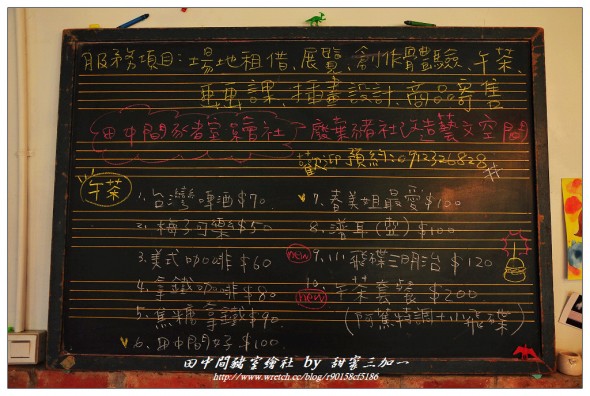 服務項目:場地租借、展覽、創作體驗、午茶、
畫畫課、插畫設計、商品寄售
田中間豬室繪社 廢棄豬社改造藝文空間
歡迎預約:0912326828
午茶
1. 台灣啤酒$70
2. 梅子可樂$50
3. 美式咖啡$60
4. 拿鐵咖啡$80
5. 焦糖拿鐵$90
6. 田中間好$100
7. 春美姐最愛$100
8. 普耳(壺)$100
new 9. 小小飛碟三明治$120
new 10. 午茶套餐$200
(阿蔦特調+小飛碟)
田中間豬室繪社 by 甜蜜三加一
http://www.wretch.cc/blog/r90158cf5186